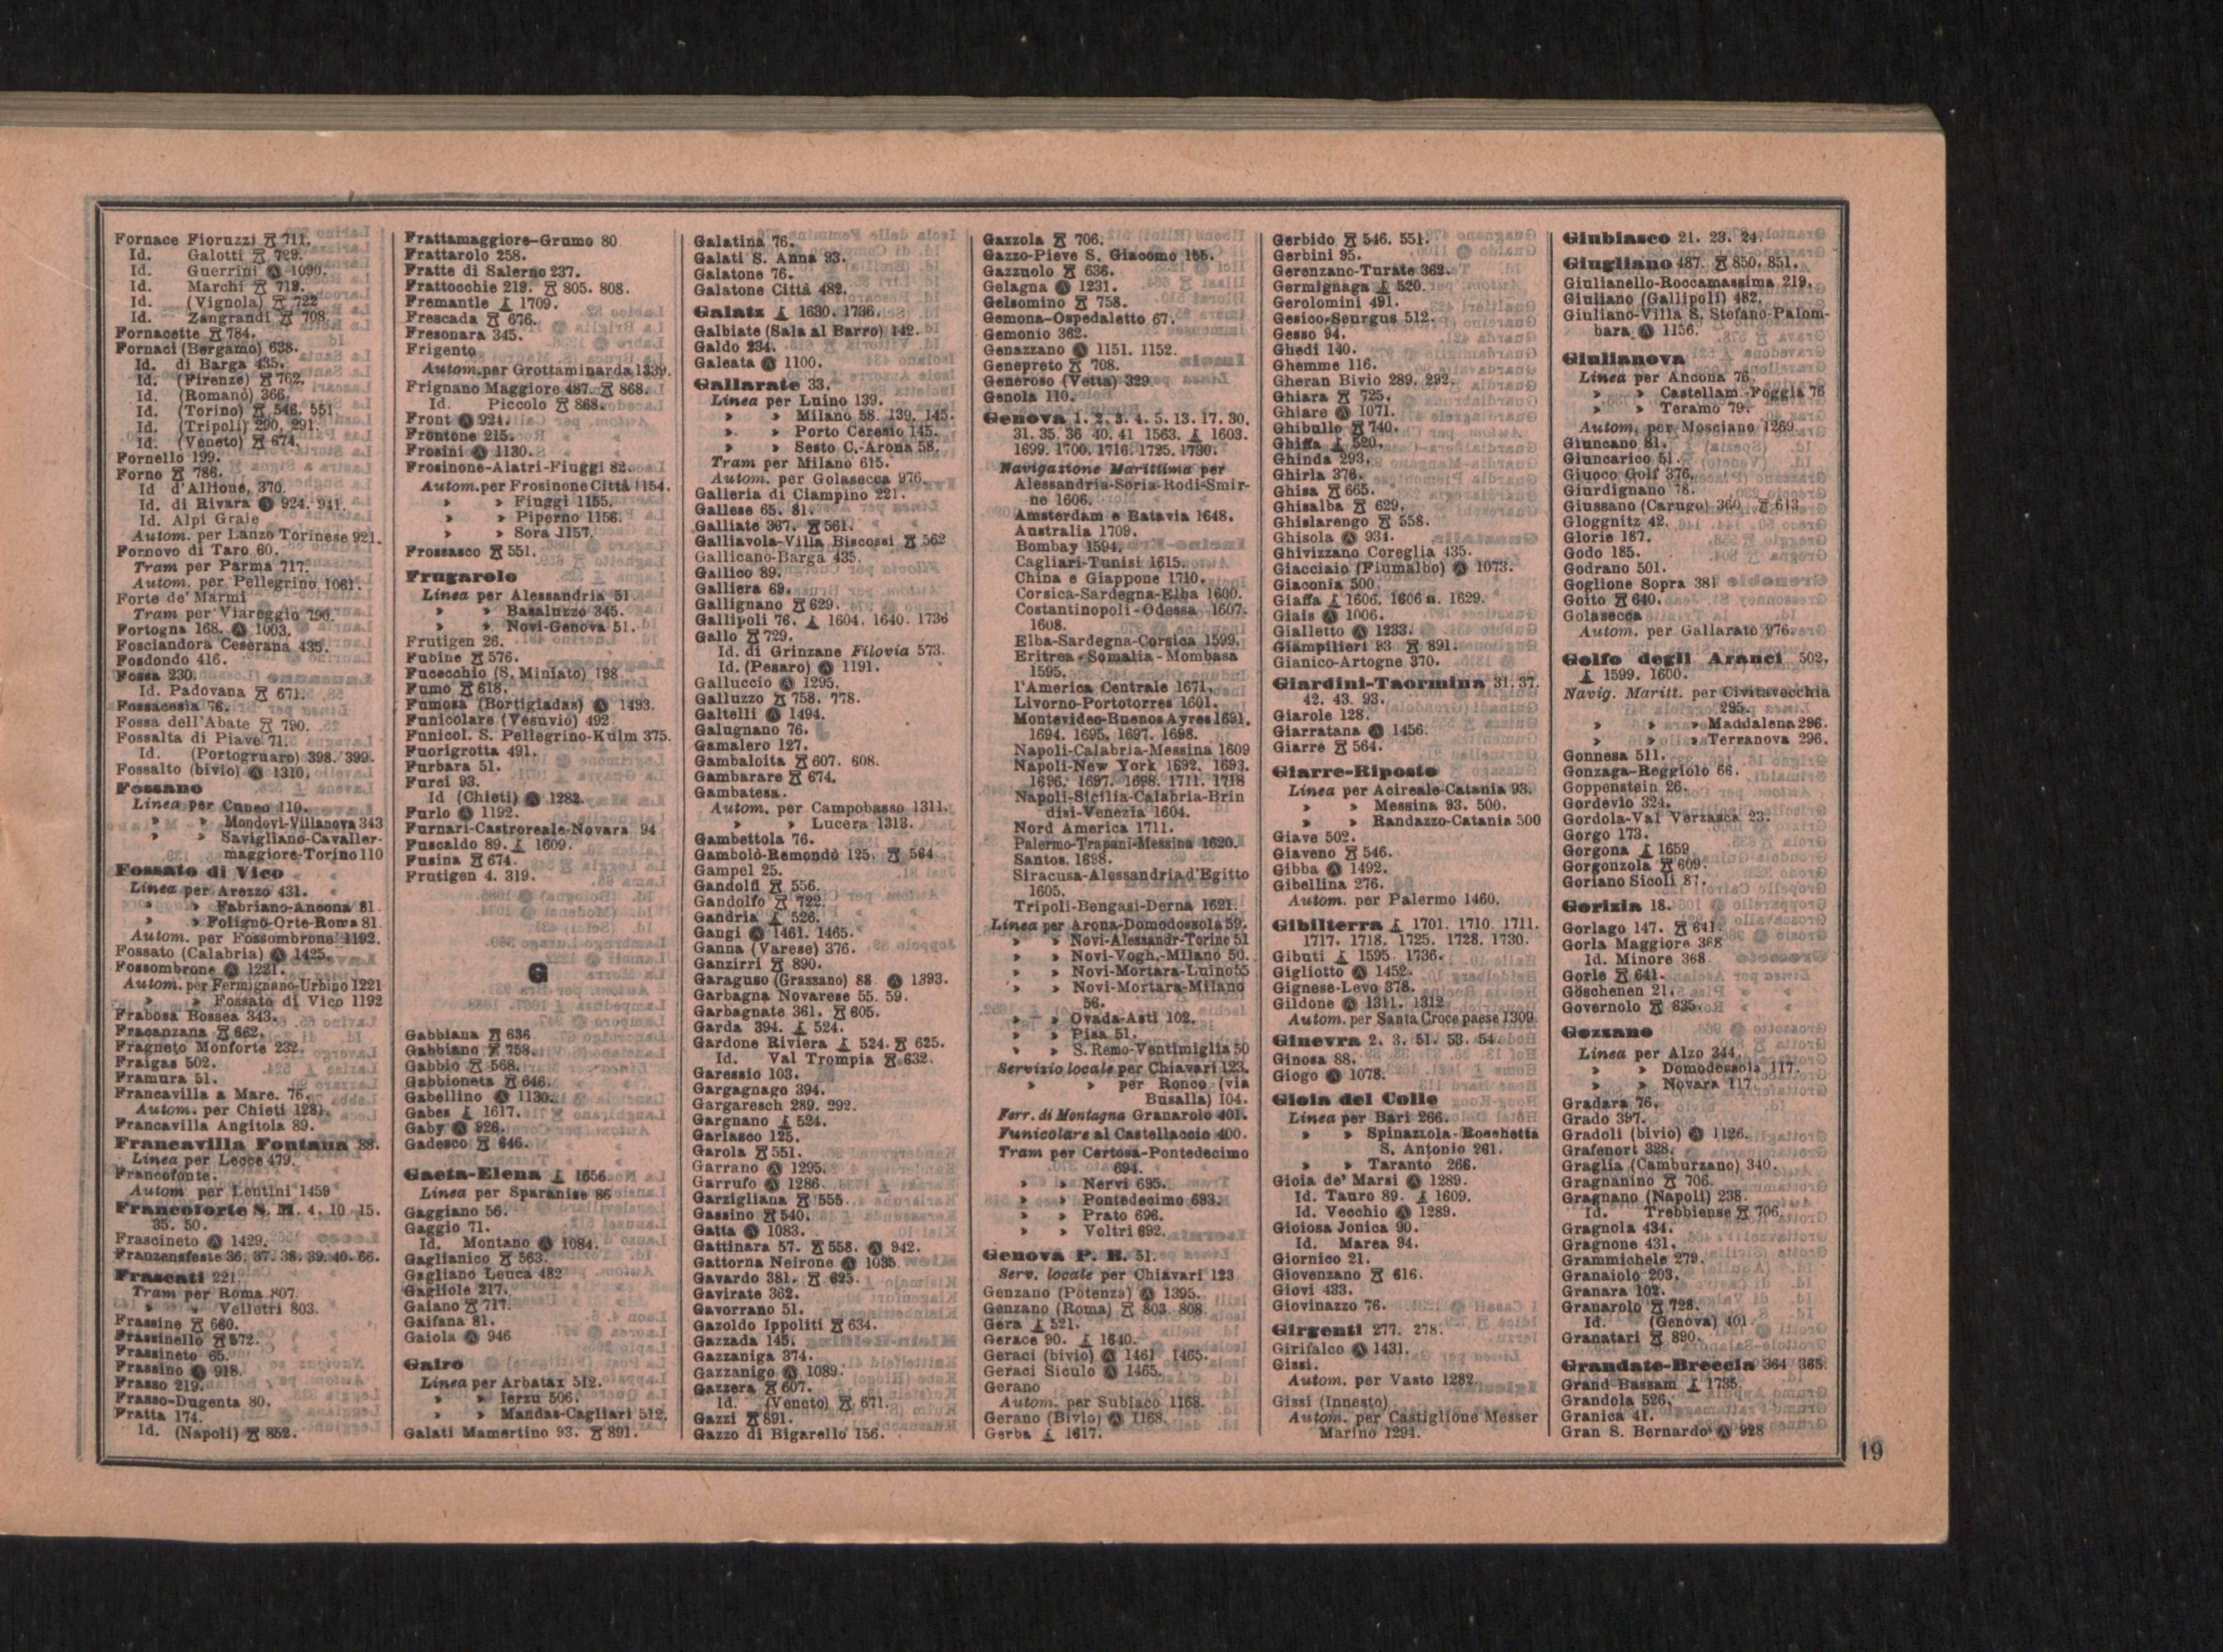 Fornace Fioruzzi 711.
Id. Galotti 729.
Id. Guerrini 1090.
Id. Marchi 712.
Id. (Vignola) 722
Id. Zangrandi 708.
Fornacette 784.
Fornaci (Bergamo) 638.
Id. di Barga 435.
Id. (Firenze) 762.
Id. (Romano) 366.
Id. (Torino) 546. 551
Id. (Tripoli) 290, 291.
Id. (Veneto) 674.
Fornello 199.
Forno 786.
Id d'Allione, 370.
Id. di Rivara 924. 941.
Id. Alpi Graie
Autom. per Lanzo Torinese 921.
Fornovo di Taro 60.
Tram per Parma 717.
Autom. per Pellegrino 1061.
Forte de' Marmi
Tram per Viareggio 790.
Fortogna 168. 1003.
Fosciandora Ceserana 435.
Fosdondo 416.
Fossa 230.
Id. Padovana 671.
Fossacesia 76.
Fossa dell'Abate 790.
Fossalta di Piave 71.
Id. (Portogruaro) 398. 399.
Fossalto (bivio) 1310.
Fossano
Linea per Cuneo 110.
» » Mondovì-Villanova 343
» » Savigliano-Cavaller-
maggiore-Torino 110
Fossato di Vico
Linea per Arezzo 431.
» » Fabriano-Ancona 81.
» » Foligno-Orte-Roma 81
Autom. per Fossombrone 1192.
Fossato (Calabria) 1425.
Fossombrone 1221.
Autom. per Fermignano-Urbino 1221
» » Fossato di Vico 1192
Frabosa Bossea 343.
Fracanzana 662.
Fragneto Monforte 232.
Fraigas 502.
Framura 51.
Francavilla a Mare. 76.
Autom. per Chieti 1281.
Francavilla Angitola 89.
Francavilla Fontana 88.
Linea per Lecce 479.
Francofonte.
Autom per Lentini 1459
Francoforte S. M. 4. 10 15.
35. 50.
Frascineto 1429.
Franzensfeste 36. 37. 38. 39. 40. 66.
Frascati 221.
Tram per Roma 807.
» » Velletri 803.
Frassine 660.
Frassinello 572.
Frassineto 65.
Frassino 918.
Frasso 219.
Frasso-Dugenta 80.
Fratta 174.
Id. (Napoli) 852.
Frattamaggiore-Grumo 80
Frattarolo 258.
Fratte di Salerno 237.
Frattocchie 219. 805. 808.
Fremantle 1709.
Frescada 676.
Fresonara 345.
Frigento
Autom. per Grottaminarda 1339.
Frignano Maggiore 487. 868.
Id. Piccolo 868.
Front 924.
Frontone 215.
Frosini 1130.
Frosinone-Alatri-Fiuggi 82.
Autom. per Frosinone Città 1154.
» » Fiuggi 1155.
» » Piperno 1156.
» » Sora 1157.
Frossasco 551.
Frugarolo
Linea per Alessandria 51.
» » Basaluzzo 345.
» » Novi-Genova 51.
Frutigen 26.
Fubine 576.
Fucecchio (S. Miniato) 198
Fumo 618.
Fumosa (Bortigiadas) 1493.
Funicolare (Vesuvio) 492
Funicol. S. Pellegrino-Kulm 375.
Fuorigrotta 491.
Furbara 51.
Furci 93.
Id (Chieti) 1282.
Furlo 1192.
Furnari-Castroreale-Novara 94
Fuscaldo 89. 1609.
Fusina 674.
Frutigen 4. 319.
G
Gabbiana 636
Gabbiano 758.
Gabbio 568.
Gabbioneta 646.
Gabellino 1130.
Gabes 1617.
Gaby 926.
Gadesco 646.
Gaeta-Elena 1656.
Linea per Sparanise 86
Gaggiano 56.
Gaggio 71.
Id. Montano 1084.
Gaglianico 563.
Gagliano Leuca 482
Gagliole 217.
Gaiano 717.
Gaifana 81.
Gaiola 946
Gairo
Linea per Arbatax 512.
» » Ierzu 506.
» » Mandas-Cagliari 512.
Galati Mamertino 93. 891.
Galatina 76.
Galati S. Anna 93.
Galatone 76.
Galatone Città 482.
Galatz 1630. 1736.
Galbiate (Sala al Barro) 142.
Galdo 234.
Galeata 1100.
Gallarate 33.
Linea per Luino 139.
» » Milano 58. 139. 145.
» » Porto Ceresio 145.
» » Sesto C.-Arona 58.
Tram per Milano 615.
Autom. per Golasecca 976.
Galleria di Ciampino 221.
Gallese 65. 81.
Galliate 367. 561.
Galliavola-Villa Biscossi 562
Gallicano-Barga 435.
Gallico 89.
Galliera 69.
Gallignano 629.
Gallipoli 76. 1604. 1640. 1736
Gallo 729.
Id. di Grinzane Filovia 573.
Id. (Pesaro) 1191.
Galluccio 1295.
Galluzzo 758. 778.
Galtelli 1494.
Galugnano 76.
Gamalero 127.
Gambaloita 607. 608.
Gambarare 674.
Gambatesa.
Autom. per Campobasso 1311.
» » Lucera 1313.
Gambettola 76.
Gambolò-Remondò 125. 564
Gampel 25.
Gandolfi 556.
Gandolfo 722.
Gandria 526.
Gangi 1461. 1465.
Ganna (Varese) 376.
Ganzirri 890.
Garaguso (Grassano) 88 1393.
Garbagna Novarese 55. 59.
Garbagnate 361. 605.
Garda 394. 524.
Gardone Riviera 524. 625.
Id. Val Trompia 632.
Garessio 103.
Gargagnago 394.
Gargaresch 289. 292.
Gargnano 524.
Garlasco 125.
Garola 551.
Garrano 1295.
Garrufo 1286
Garzigliana 555.
Gassino 540.
Gatta 1083.
Gattinara 57. 558. 942.
Gattorna Neirone 1035
Gavardo 381. 625.
Gavirate 362.
Gavorrano 51.
Gazoldo Ippoliti 634.
Gazzada 145.
Gazzaniga 374.
Gazzanigo 1089.
Gazzera 607.
Id. (Veneto) 671.
Gazzi 891.
Gazzo di Bigarello 156.
Gazzola 706.
Gazzo-Pieve S. Giacomo 155.
Gazzuolo 636.
Gelagna 1231.
Gelsomino 758.
Gemona-Ospedaletto 67.
Gemonio 362.
Genazzano 1151. 1152.
Genepreto 708.
Generoso (Vetta) 329.
Genola 110.
Genova 1. 2. 3. 4. 5. 13. 17. 30.
31. 35. 36 40. 41 1563. 1603.
1699. 1700. 1716. 1725. 1730.
Navigazione Marittima per
Alessandria-Soria-Rodi-Smir-
ne 1606.
Amsterdam e Batavia 1648.
Australia 1709.
Bombay 1594.
Cagliari-Tunisi 1615.
China e Giappone 1710.
Corsica-Sardegna-Elba 1600.
Costantinopoli-Odessa 1607.
1608.
Elba-Sardegna-Corsica 1599.
Eritrea-Somalia-Mombasa
1595.
l'America Centrale 1671.
Livorno-Portotorres 1601.
Montevideo-Buenos Ayres 1691.
1694. 1695. 1697. 1698.
Napoli-Calabria-Messina 1609
Napoli-New York 1692. 1693.
1696. 1697. 1698. 1711. 1718
Napoli-Sicilia-Calabria-Brin
disi-Venezia 1604.
Nord America 1711.
Palermo-Trapani-Messina 1620.
Santos. 1698.
Siracusa-Alessandria d'Egitto
1605.
Tripoli-Bengasi-Derna 1621.
Linea per Arona-Domodossola 59.
» » Novi-Alessandr-Torino 51
» » Novi-Vogh.-Milano 50.
» » Novi-Mortara-Luino 55
» » Novi-Mortara-Milano
56.
» » Ovada-Asti 102.
» » Pisa 51.
» » S. Remo-Ventimiglia 50
Servizio locale per Chiavari 123.
» » per Ronco (via
Busalla) 104.
Ferr. di Montagna Granarolo 401.
Funicolare al Castellaccio 400.
Tram per Certosa-Pontedecimo
694.
» » Nervi 695.
» » Pontedecimo 693.
» » Prato 696.
» » Voltri 692.
Genova P. B. 51.
Serv. locale per Chiavari 123
Genzano (Potenza) 1395.
Genzano (Roma) 803. 808
Gera 521.
Gerace 90. 1640.
Geraci (bivio) 1461 1465.
Geraci Siculo 1465.
Gerano
Autom. per Subiaco 1168.
Gerano (Bivio) 1168.
Gerba 1617.
Gerbido 546. 551.
Gerbini 95.
Gerenzano-Turate 362.
Germignaga 520.
Gerolomini 491.
Gesico-Seurgus 512.
Gesso 94.
Ghedi 140.
Ghemme 116.
Gheran Bivio 289. 292.
Ghiara 725.
Ghiare 1071.
Ghibullo 740.
Ghiffa 520.
Ghinda 293.
Ghirla 376.
Ghisa 665.
Ghisalba 629.
Ghislarengo 558.
Ghisola 934.
Ghivizzano Coreglia 435.
Giacciaio (Fiumalbo) 1073.
Giaconia 500.
Giaffa 1606. 1606 n. 1629.
Giais 1006.
Gialletto 1233.
Giampilieri 93 891.
Gianico-Artogne 370.
Giardini-Taormina 31. 37.
42. 43. 93.
Giarole 128.
Giarratana 1456.
Giarre 564.
Giarre-Riposto
Linea per Acireale-Catania 93.
» » Messina 93. 500.
» » Randazzo-Catania 500
Giave 502.
Giaveno 546.
Gibba 1492.
Gibellina 276.
Autom. per Palermo 1460.
Gibilterra 1701. 1710. 1711.
1717. 1718. 1725. 1728. 1730.
Gibuti 1595 1736.
Gigliotto 1452.
Gignese-Levo 378.
Gildone 1311. 1312
Autom. per Santa Croce paese 1309
Ginevra 2. 3. 51. 53. 54.
Ginosa 88.
Giogo 1078.
Gioia del Colle
Linea per Bari 266.
» » Spinazzola-Rocchetta
S. Antonio 261.
» » Taranto 266.
Gioia de' Marsi 1289.
Id. Tauro 89. 1609.
Id. Vecchio 1289.
Gioiosa Jonica 90.
Id. Marea 94.
Giornico 21.
Giovenzano 616.
Giovi 433.
Giovinazzo 76.
Girgenti 277. 278.
Girifalco 1431.
Gissi.
Autom. per Vasto 1282
Gissi (Innesto)
Autom. per Castiglione Messer
Marino 1294.
Giubiasco 21. 23. 24.
Giugliano 487. 850. 851.
Giulianello-Roccamassima 219.
Giuliano (Gallipoli) 482.
Giuliano-Villa S. Stefano-Palom-
bara 1156.
Giulianova
Linea per Ancona 76.
» » Castellam.-Foggia 76
» » Teramo 79.
Autom. per Mosciano 1269
Giuncano 81.
Giuncarico 51.
Giuoco Golf 376.
Giurdignano 78.
Giussano (Carugo) 360. 613
Gloggnitz 42.
Glorie 187.
Godo 185.
Godrano 501.
Goglione Sopra 381
Goito 640.
Golasecca
Autom. per Gallarate 976.
Golfo degli Aranci 502.
1599. 1600.
Navig. Maritt. per Civitavecchia
295.
» » » Maddalena 296.
» » » Terranova 296.
Gonnesa 511.
Gonzaga-Reggiolo 66.
Goppenstein 26.
Gordevio 324.
Gordola-Val Verzasca 23.
Gorgo 173.
Gorgona 1659
Gorgonzola 609.
Goriano Sicoli 87.
Gorizia 18.
Gorlago 147. 641.
Gorla Maggiore 368
Id. Minore 368
Gorle 641.
Göschenen 21.
Governolo 635.
Gozzano
Linea per Alzo 344.
» » Domodossola 117.
» » Novara 117.
Gradara 76.
Grado 397.
Gradoli (bivio) 1126.
Grafenort 328.
Graglia (Camburzano) 340.
Gragnanino 706.
Gragnano (Napoli) 238.
Id. Trebbiense 706.
Gragnola 434.
Gragnone 431.
Grammichele 279.
Granaiolo 203.
Granara 102.
Granarolo 728.
Id. (Genova) 401
Granatari 890.
Grandate-Breccia 364 365.
Grand Bassam 1735.
Grandola 526.
Granica 41.
Gran S. Bernardo 928
19